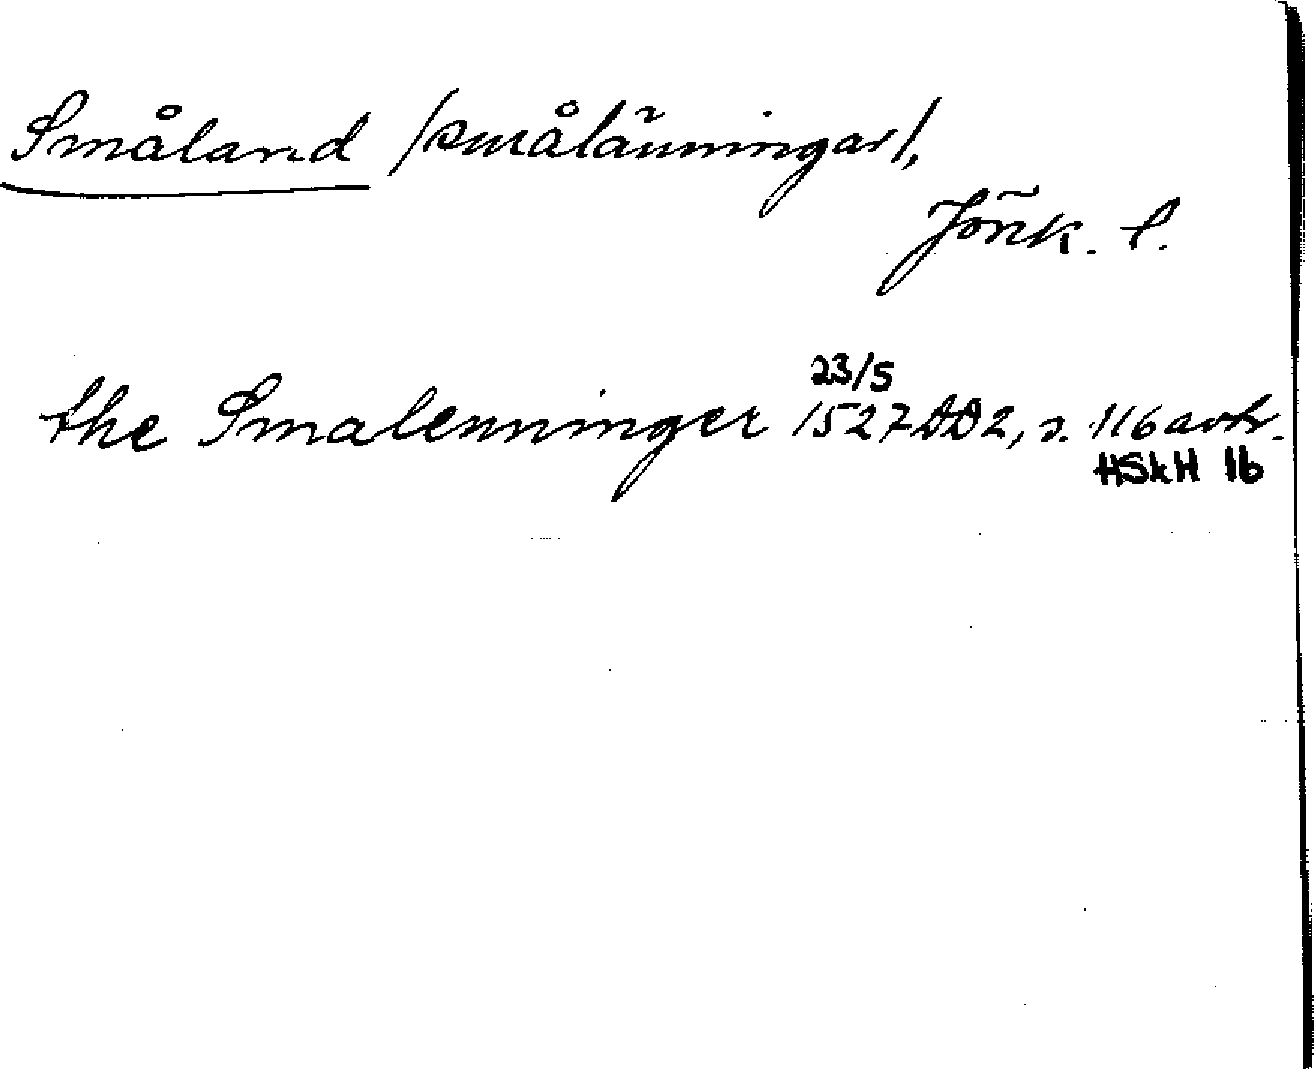 Småland /smålänningar/,
Jönk. l.
23/5
the Smalenninger 1527 DD2, s. 116 avtr.
HSkH 1b